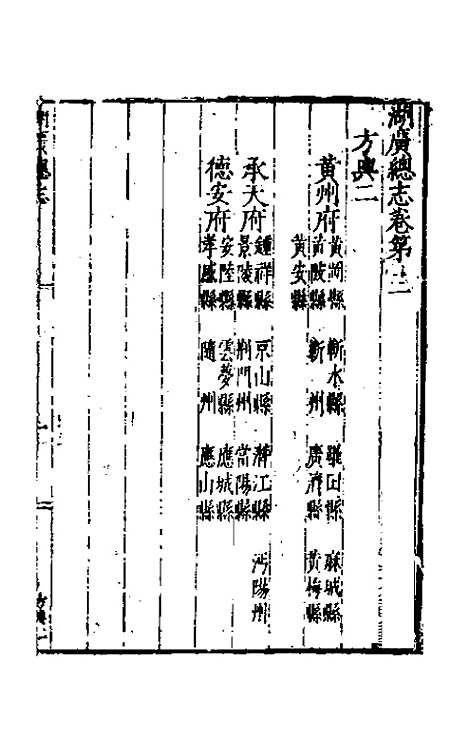 湖廣總志卷第
方輿二
黃州府 黃岡縣 蘄水縣 羅田縣 麻城縣
黃陂縣 蘄州 廣濟縣 黃梅縣
黃安縣
承天府 鍾祥縣 京山縣 潛江縣 沔陽州
景陵縣 荊門州 當陽縣
德安府 安陸縣 雲夢縣 應城縣
孝感縣 隨州 應山縣